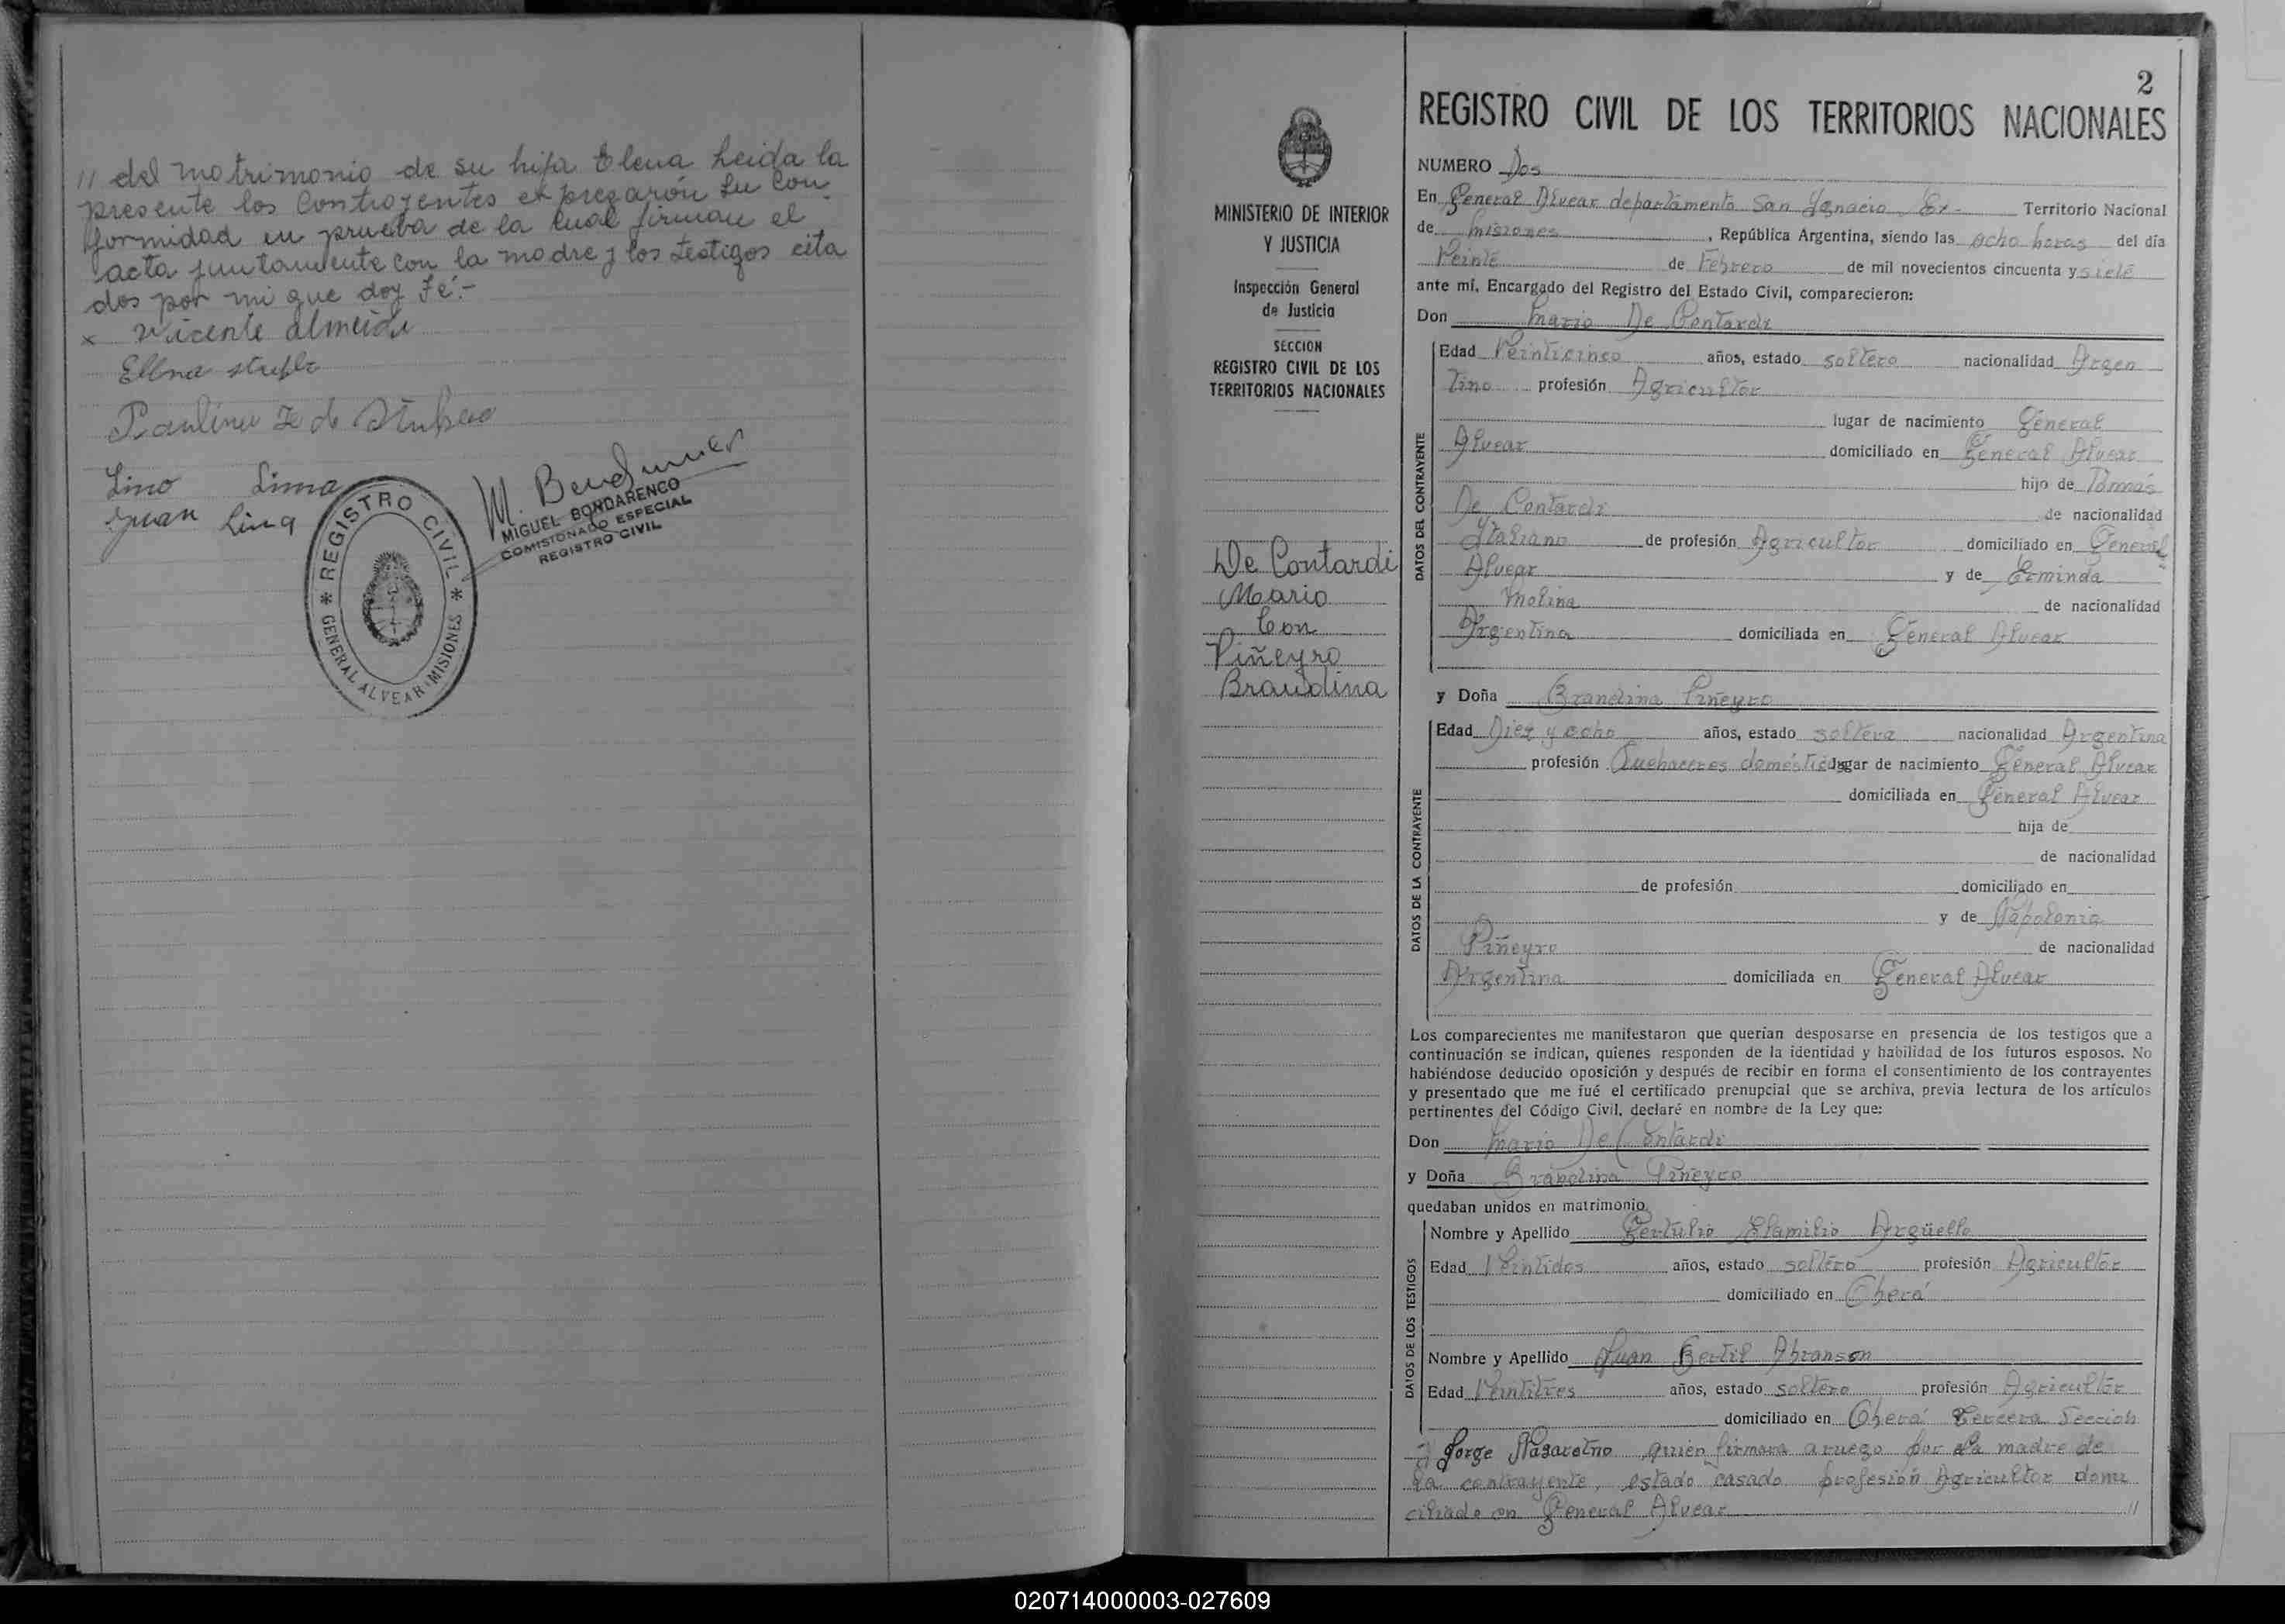 // del matrimonio de su hija Elena Leida la
presente los Controyentes expregarón su con
formidad en prueba de la cual firman el
acta juntamente con la madre y los testigos cita
dos por mi que doy Fé.-
x Vicente almeida
Paulina de
Lino Lima
Juan Lima
REGISTRO CIVIL
GENERAL ALVEAR-MISIONES
MIGUEL BONDARENCO
COMISIONADO ESPECIAL
REGISTRO CIVIL
MINISTERIO DE INTERIOR
Y JUSTICIA
Inspección General
de Justicia
SECCION
REGISTRO CIVIL DE LOS
TERRITORIOS NACIONALES
De Contardi
Mario
Con
Piñeyro
Brandina
2
REGISTRO CIVIL DE LOS TERRITORIOS NACIONALES
NUMERO Dos
En General Alvear departamento San Ygnacio, Ex- Territorio Nacional
de Misiones, República Argentina, siendo las ocho horas del día
Veinte de Febrero de mil novecientos cincuenta y siete
ante mí, Encargado del Registro del Estado Civil, comparecieron:
Don Mario De Contardi
DATOS DEL CONTRAYENTE
Edad Veinticinco años, estado soltero nacionalidad Argen
tino profesión Agricultor
lugar de nacimiento General
Alvear domiciliado en General Alvear
hijo de Tomás
De Contardi de nacionalidad
Ytaliano de profesión Agricultor domiciliado en General
Alvear y de Erminda
Molina de nacionalidad
Argentina domiciliada en General Alvear
y Doña Brandina Piñeyro
DATOS DE LA CONTRAYENTE
Edad Diez y ocho años, estado soltera nacionalidad Argentina
profesión Quehaceres domésticos lugar de nacimiento General Alvear
domiciliada en General Alvear
hija de
de nacionalidad
de profesión domiciliado en
y de Napolonia
Piñeyro de nacionalidad
Argentina domiciliada en General Alvear
Los comparecientes me manifestaron que querían desposarse en presencia de los testigos que a
continuación se indican, quienes responden de la identidad y habilidad de los futuros esposos. No
habiéndose deducido oposición y después de recibir en forma el consentimiento de los contrayentes
y presentado que me fué el certificado prenupcial que se archiva, previa lectura de los artículos
pertinentes del Código Civil, declaré en nombre de la Ley que:
Don Mario De Contardi
y Doña Brandina Piñeyro
quedaban unidos en matrimonio.
DATOS DE LOS TESTIGOS
Nombre y Apellido Argüello
Edad Veintidos años, estado soltero profesión Agricultor
domiciliado en Oberá
Nombre y Apellido Juan Bertil Abranson
Edad Veintitres años, estado soltero profesión Agricultor
domiciliado en Oberá Tercera Sección
y Jorge Nasareno quién firmara a ruego por la madre de
la contrayente, estado casado profesión Agricultor domi
ciliado en General Alvear //
020714000003-027609